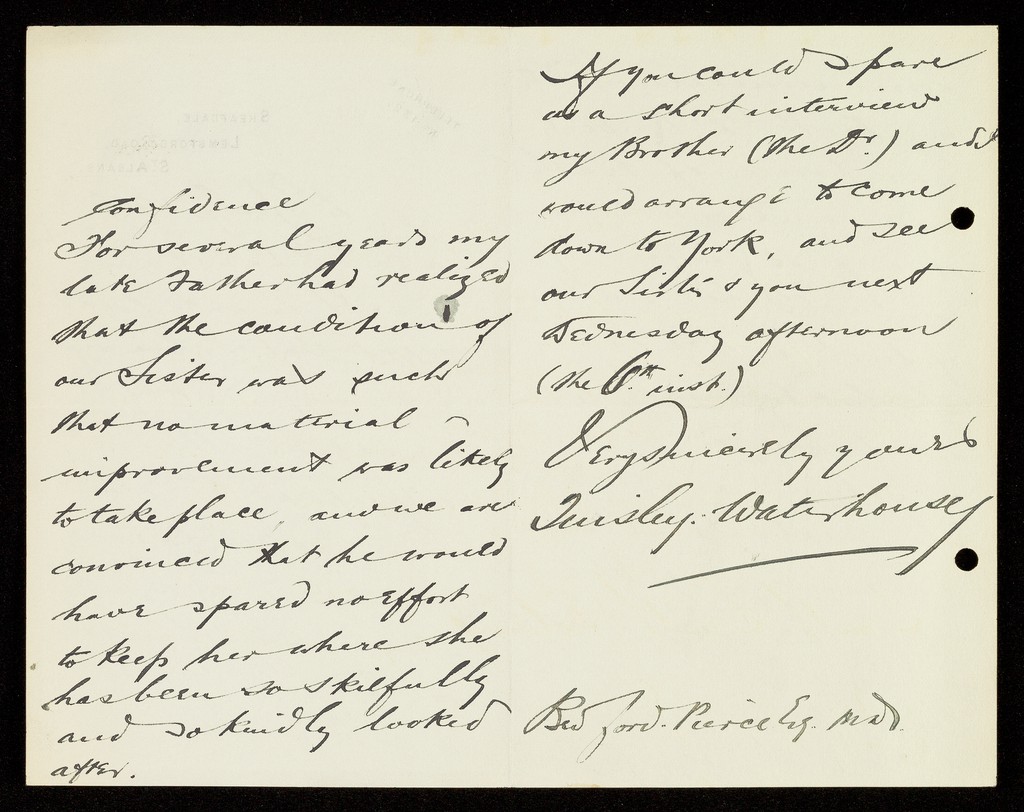 Confidence
For several years my
late Father had realized
that the condition of
our Sister was such
that no material
improvement was likely
to take place, and we are
convinced that he would
have spared no effort
to keep her where she
has been so skilfully
and so kindly looked
after.
If you could spare
us a short interview
my Brother (the Dr.) and I
would arrange to come
down to York, and see
our Sister & you next
Wednesday afternoon
(the 6.th inst.)
Very sincerely yours
Waterhouse
Bedford. Pierce Esq. M.D.